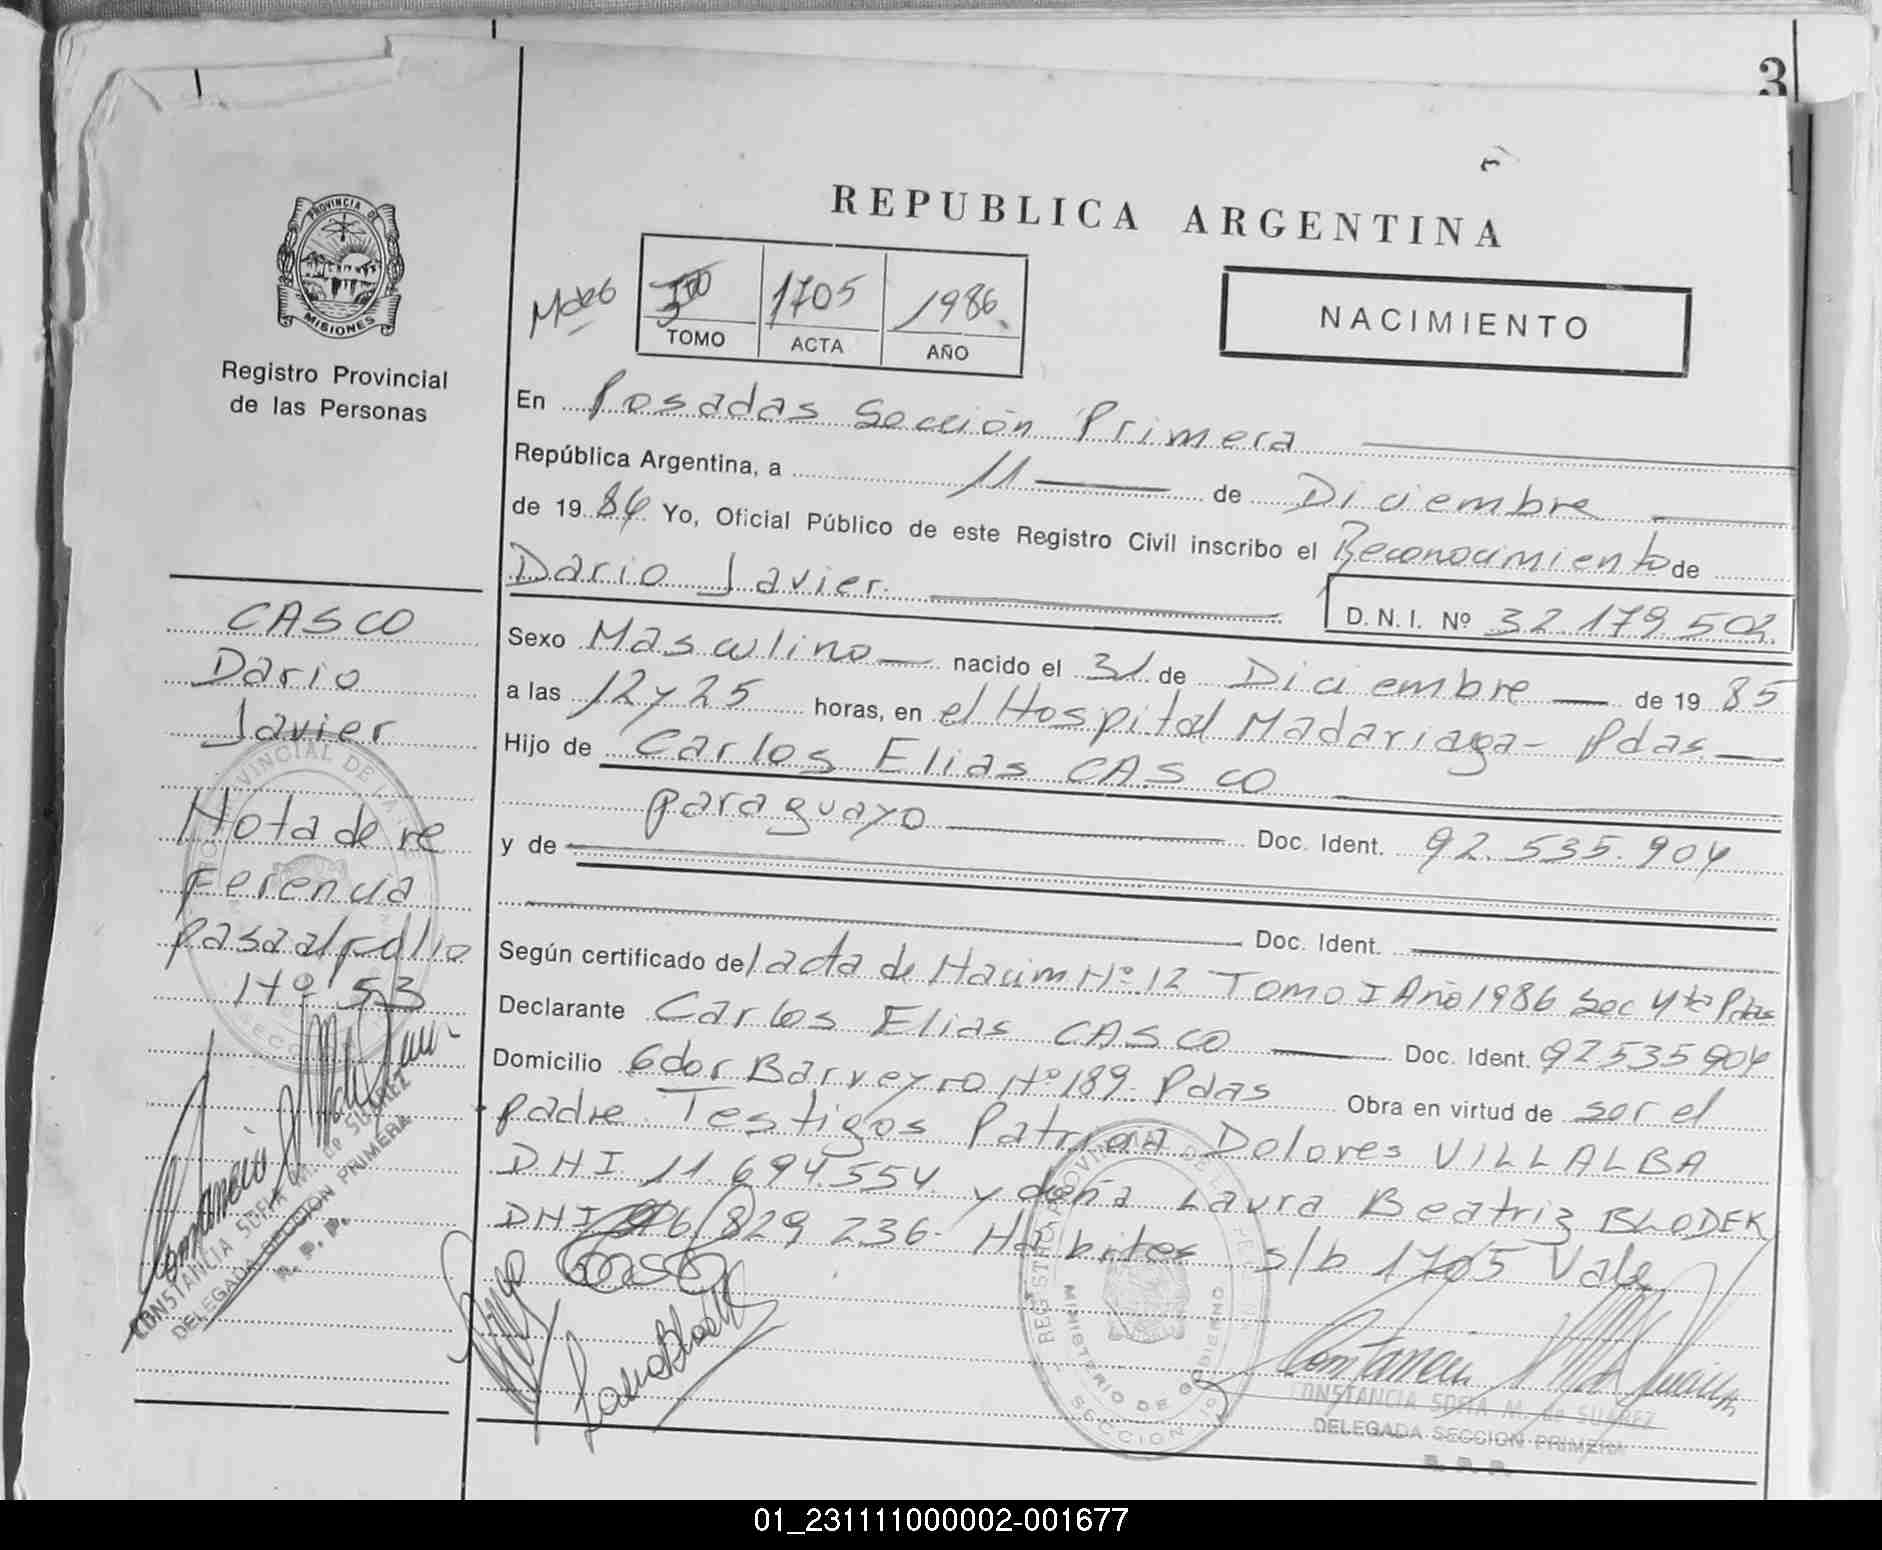 3
PROVINCIA DE
MISIONES
Registro Provincial
de las Personas
REPUBLICA ARGENTINA
1705 1986
TOMO ACTA AÑO
NACIMIENTO
En Posadas Sección Primera
República Argentina, a 11 de Diciembre
de 19 86 Yo, Oficial Público de este Registro Civil inscribo el Reconocimiento de
Dario Javier.
D. N. I. Nº 32.179.502.
Sexo Masculino nacido el 31 de Diciembre de 19 85
a las 12 y 25 horas, en el Hospital Madariaga - Pdas.
Hijo de Carlos Elias CASCO
paraguayo Doc. Ident. 92.535.904
y de
Doc. Ident.
Según certificado del acta de Nacim Nº 12 Tomo I Año 1986 Sec 4ta Pdas
Declarante Carlos Elias CASCO Doc. Ident. 92535904
Domicilio Gdor Barreyro Nº 189. Pdas Obra en virtud de ser el
padre Testigos Patricia Dolores VILLALBA
DNI 11.694.554. y doña Laura Beatriz BLODEK
DNI 16/829 236- s/b 1705 Vale
CASCO
Dario
Javier
Nota de re
ferencia
pasa al folio
Nº 53
CONSTANCIA SOFIA M. de SUAREZ
DELEGADA SECCION PRIMERA
R. P. P.
MINISTERIO DE GOBIERNO
SECCION 1ª
CONSTANCIA SOFIA M. de SUAREZ
DELEGADA SECCION PRIMERA
R. P. P.
01_231111000002-001677